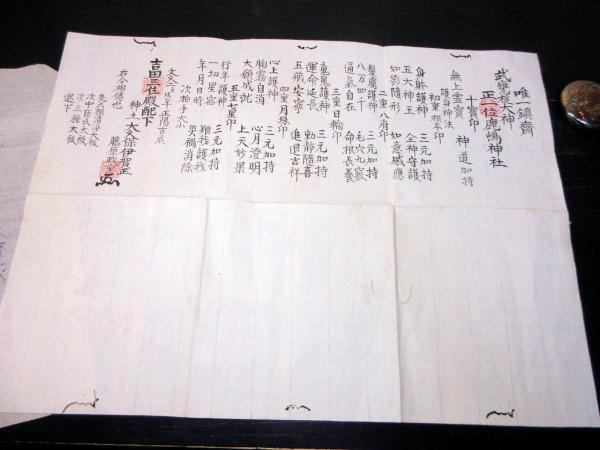 唯一鎮齋
武甕槌大神
正一位鹿嶋神社
十寶印
無上霊寶 神道加持
護身神法
初重 根本印
身躰護神 三元加持
五大神王 全神守護
如影隨形 如意感應
二重八府印
髮膚護神 三元加持
八万四千 毛穴九竅
通氣自在 命根長養
三重日輪印
魂魄護神 三元加持
運命延長 動靜隨喜
五臓安寧 進退吉祥
四重月珠印
心上護神 三元加持
胸霧自消 心月澄明
大願成就 上天妙果
五重七星印
行年護神 三元加持
一切星宿 難我護我
年月日時 災禍消除
次拍手大小
正陽吉辰
吉田三位殿配下
神主 大久保伊賀正
藤原政
右令相傳也
先天照皇太祓
次中臣大祓
次三種大祓
退下